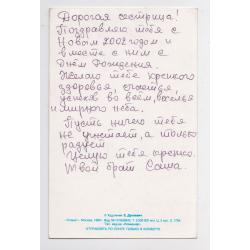 Дорогая сестрица!
Поздравляю тебя с
Новым 2002 годом и
вместе с ним с
Днём Рождения.
Желаю тебе крепкого
здоровья, счастья,
успехов во всём, веселья
и мирного неба.
Пусть ничего тебя
не угнетает, а только
радует
Целую тебя крепко.
Твой брат Саша.
© Художник
ОТПРАВЛЯТЬ ПО ПОЧТЕ ТОЛЬКО В КОНВЕРТЕ